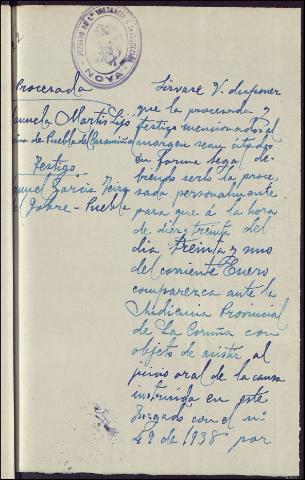 JUZGADO DE 1ª INSTANCIA E INSTRUCCIÓN
NOYA
Procesada
Manuela Martis Lijó
de Puebla del Caramiñal
Testigo
Manuel García
Puebla
Sírvase V. disponer
que la procesada y
testigo mencionados al
margen sean citados
en forma legal de-
biendo serlo la proce-
sada personalmente
para que á la hora
de diez treinta del
día Treinta y uno
del corriente Enero
comparezca ante la
Audiencia Provincial
de La Coruña con
objeto de asistir al
juicio oral de la causa
instruida en este
Juzgado con el nº
49 de 1938 por